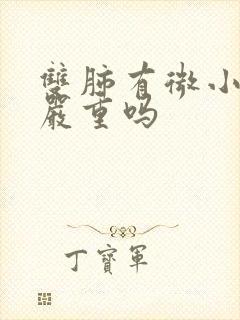 雙肺有微小
嚴重吗
丁寶軍